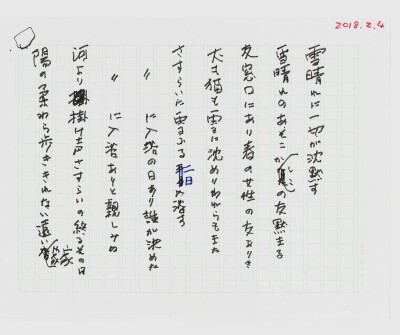 2018.2.4
雪晴れに一切が沈黙す
雪晴れのあそこかしこの友黙まる
友窓口にあり春の女性の友ありき
犬も猫も雪に沈めりわれらもまた
さすらいに雪ふる二日入浴す
〃 に入浴の日あり誰が決めた
〃 に入浴ありと親しみぬ
河より掛け声さすらいの終るその日
陽の柔わら歩ききれない遠い家